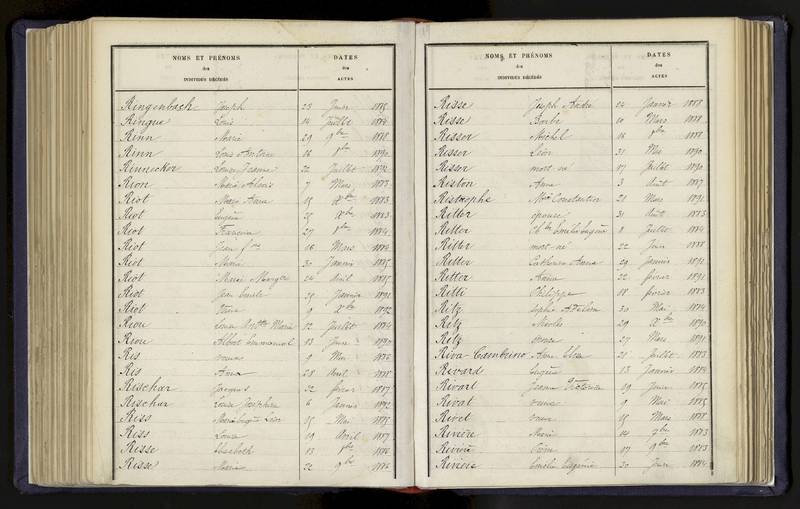 NOMS ET PRÉNOMS
des
INDIVIDUS DÉCÉDÉS
DATES
des
ACTES
Ringenbach Joseph 23 1885
Ringue Louis 14 Juillet 1884
Rinn Marie 29 9bre 1888
Rinn Louis 16 1890
Rinnecker Jeanne 22 Juillet 1892
Rion 7 Mars 1883
Riot Marie Anne 15 Xbre 1883
Riot Eugène 25 Xbre 1883
Riot 27 1884
Riot Jean 16 Mars 1884
Riot Marie 30 Janvier 1885
Riot Marie 24 Avril 1885
Riot Jean Emile 25 Janvier 1891
Riot 9 Xbre 1892
Riou Marie 12 Juillet 1884
Riou Albert Emmanuel 13 1890
Ris 9 Mai 1886
Ris Anna 28 Avril 1888
Rischar Jacques 22 février 1887
Rischar Louise Joséphine 6 Janvier 1892
Riss 15 Mai 1885
Riss Louise 19 Avril 1887
Risse Elisabeth 13 1886
Risse Marie 22 9bre 1886
NOMS ET PRÉNOMS
des
INDIVIDUS DÉCÉDÉS
DATES
des
ACTES
Risse Joseph André 24 Janvier 1888
Risse Barbe 10 Mars 1888
Risser Michel 16 1888
Risser Léon 31 Mai 1890
Risser mort né 17 Juillet 1890
Riston Anne 3 Août 1887
Ristrophe Constantin 21 Mars 1891
Ritter épouse 31 Août 1883
Ritter Eugène 8 Juillet 1884
Ritter mort-né 22 Juin 1888
Ritter Catherine Anna 29 Janvier 1891
Ritter 22 février 1891
Ritti Philippe 18 février 1883
Ritz Sophie 20 Mai 1884
Ritz Nicolas 29 Xbre 1890
Ritz 27 Mars 1891
Riva-Cambrino 21 Juillet 1883
Rivard Eugène 13 Janvier 1884
Rivart Jeanne Victorine 29 1885
Rivat veuve 9 Mai 1885
Rivet veuve 15 Mars 1888
Rivière Marie 14 7bre 1883
Rivière 17 9bre 1883
Rivière Emélie Eugénie 20 Juin 1884